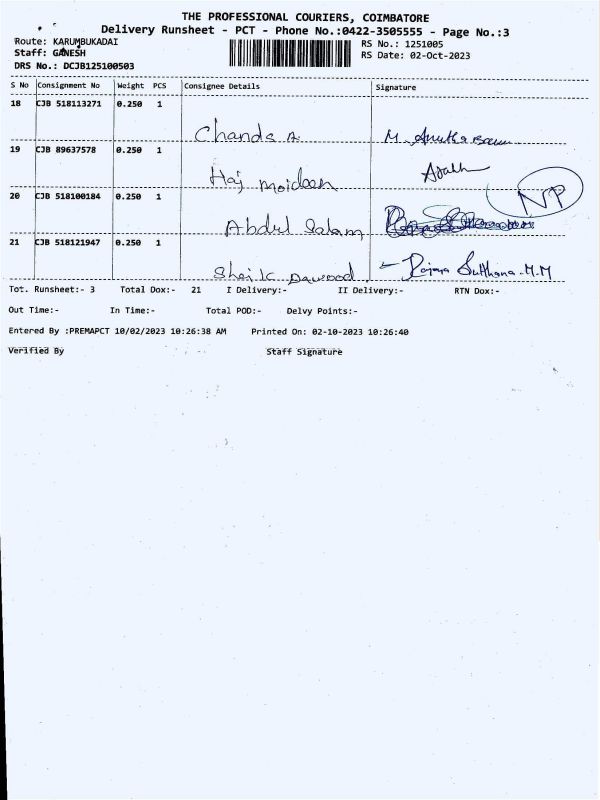 THE PROFESSIONAL COURIERS, COIMBATORE
Delivery Runsheet - PCT - Phone No.:0422-3505555 - Page No.:3
Route: KARUMBUKADAI
RS No.: 1251005
Staff: GANESH
RS Date: 02-Oct-2023
DRS No.: DCJB125100503
S No Consignment No Weight PCS Consignee Details Signature
18 CJB 518113271 0.250 1
Chanda A
19 CJB 89637578 0.250 1
Haj moideen
NP
20 CJB 518100184 0.250 1
Abdul Salam
21 CJB 518121947 0.250 1
Sheik Dawood
Tot. Runsheet:- 3 Total Dox:- 21 I Delivery:- II Delivery:- RTN Dox:-
Out Time:- In Time:- Total POD:- Delvy Points:-
Entered By :PREMAPCT 10/02/2023 10:26:38 AM Printed On: 02-10-2023 10:26:40
Verified By Staff Signature